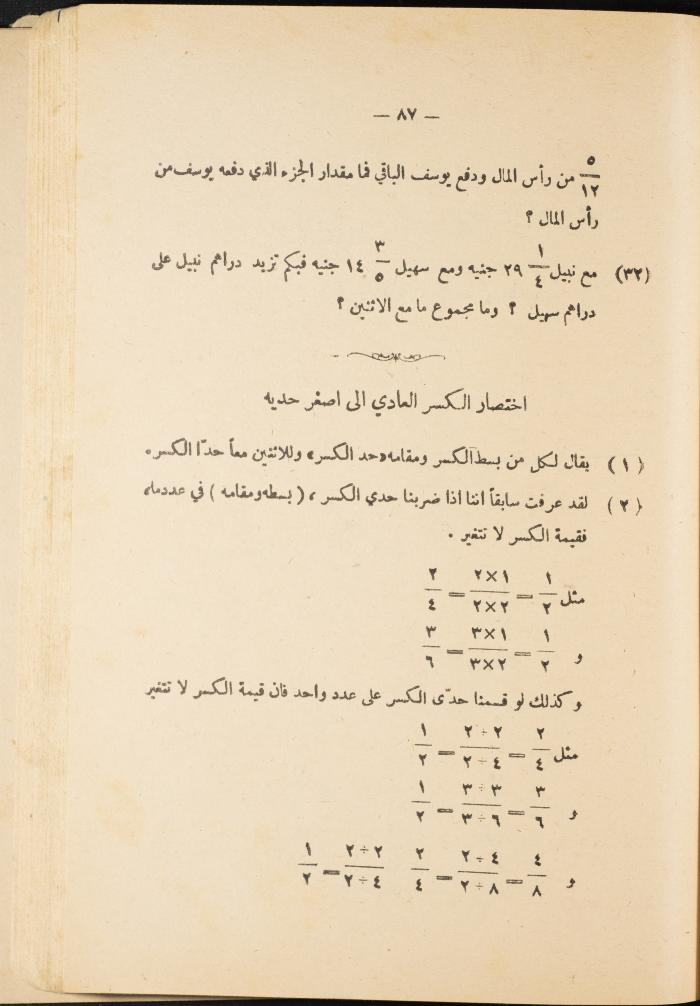 — ٨٧ —
٥/١٢ من رأس المال ودفع يوسف الباقي فما مقدار الجزء الذي دفعه يوسف من
رأس المال ؟
(٣٢) مع نبيل ١/٤ ٢٩ جنيه ومع سهيل ٣/٥ ١٤ جنيه فبكم تزيد دراهم نبيل على
دراهم سهيل ؟ وما مجموع ما مع الاثنين ؟
اختصار الكسر العادي الى اصغر حديه
(١) يقال لكل من بسط الكسر ومقامه «حد الكسر» وللاثنين معاً حدّا الكسر.
(٢) لقد عرفت سابقاً اننا اذا ضربنا حدي الكسر ، (بسطه ومقامه) في عدد ما،
فقيمة الكسر لا تتغير .
مثل ١/٢ = ١×٢/٢×٢ = ٢/٤
و ١/٢ = ١×٣/٢×٣ = ٣/٦
وكذلك لو قسمنا حدّى الكسر على عدد واحد فان قيمة الكسر لا تتغير
مثل ٢/٤ = ٢÷٢/٤÷٢ = ١/٢
و ٣/٦ = ٣÷٣/٦÷٣ = ١/٢
و ٤/٨ = ٤÷٢/٨÷٢ = ٢/٤ ٢÷٢/٤÷٢ = ١/٢